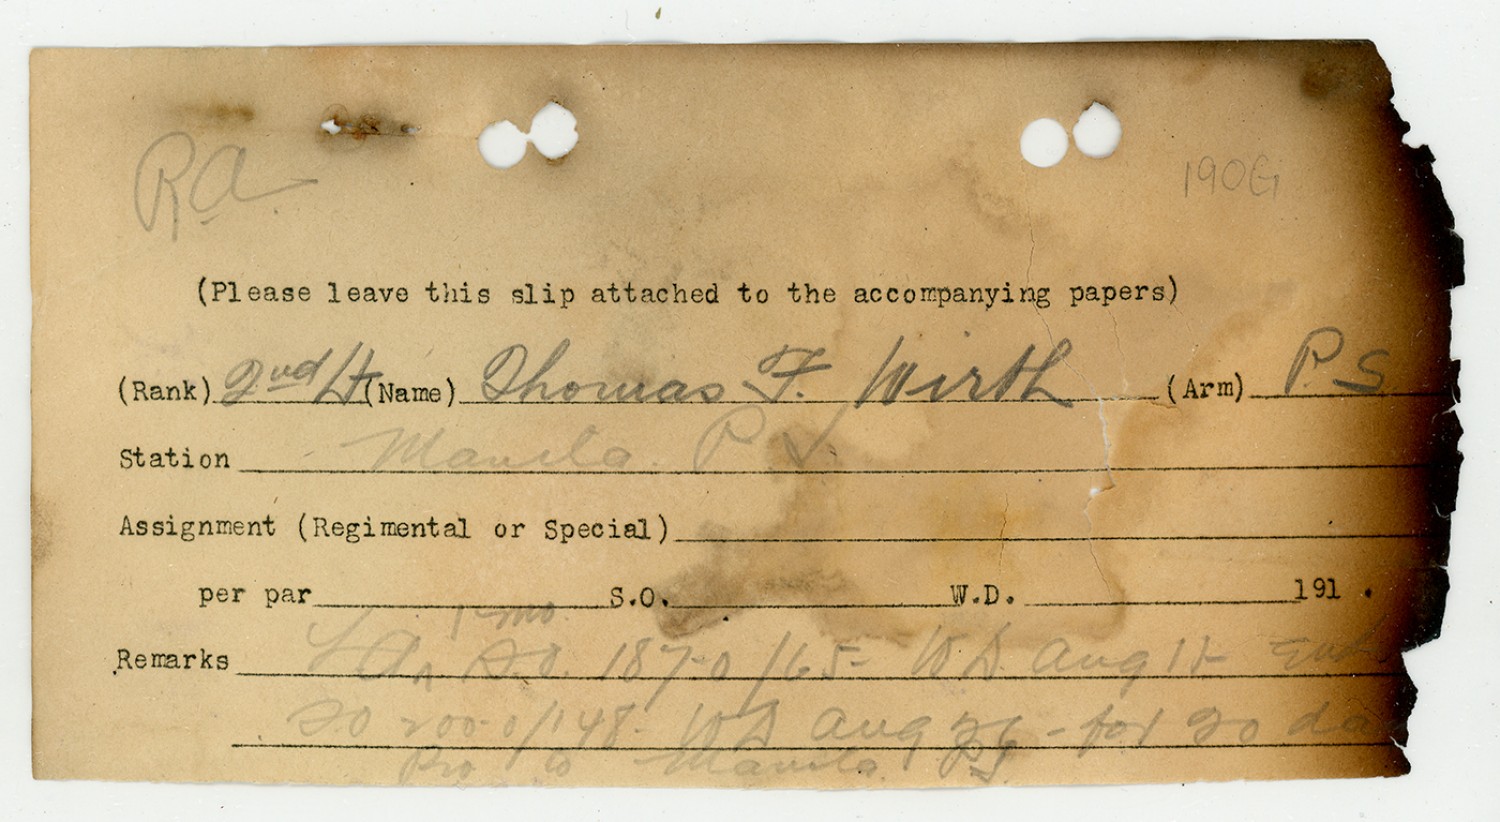 RA
190G
(Please leave this slip attached to the accompanying papers)
(Rank) 2nd Lt (Name) Thomas F. Wirth (Arm) P.S.
Station Manila P.I.
Assignment (Regimental or Special)
per par S.O. W.D. 191 .
1 mo
Remarks S.O. 187-0/165- WD Aug 11-
SO 200-0/148- WD Aug 26- for 20 da
Pro to Manila PI